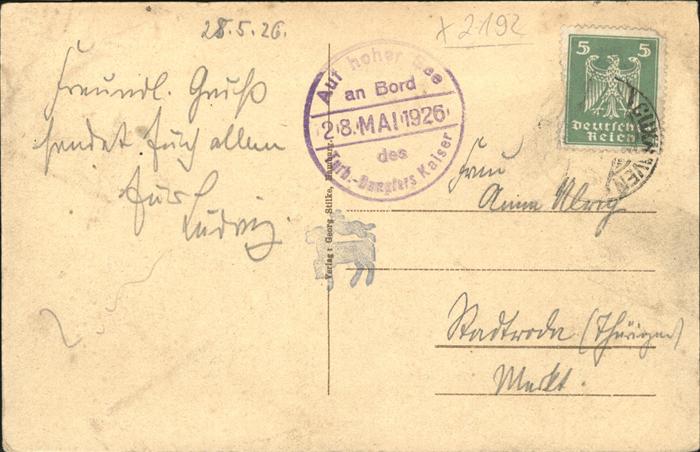 28.5.26.
x 2192
Freundl. Gruß
sendet Euch allen
Euer
Ludwig.
Auf hoher See
an Bord
28.MAI 1926
des
Turb.-Dampfers Kaiser
Verlag: Georg Stilke, Hamburg.
5 5
Deutsches
Reich
CUXHAVEN
Frau
Anna Ulrig
Stadtroda (Thüringen)
Markt.